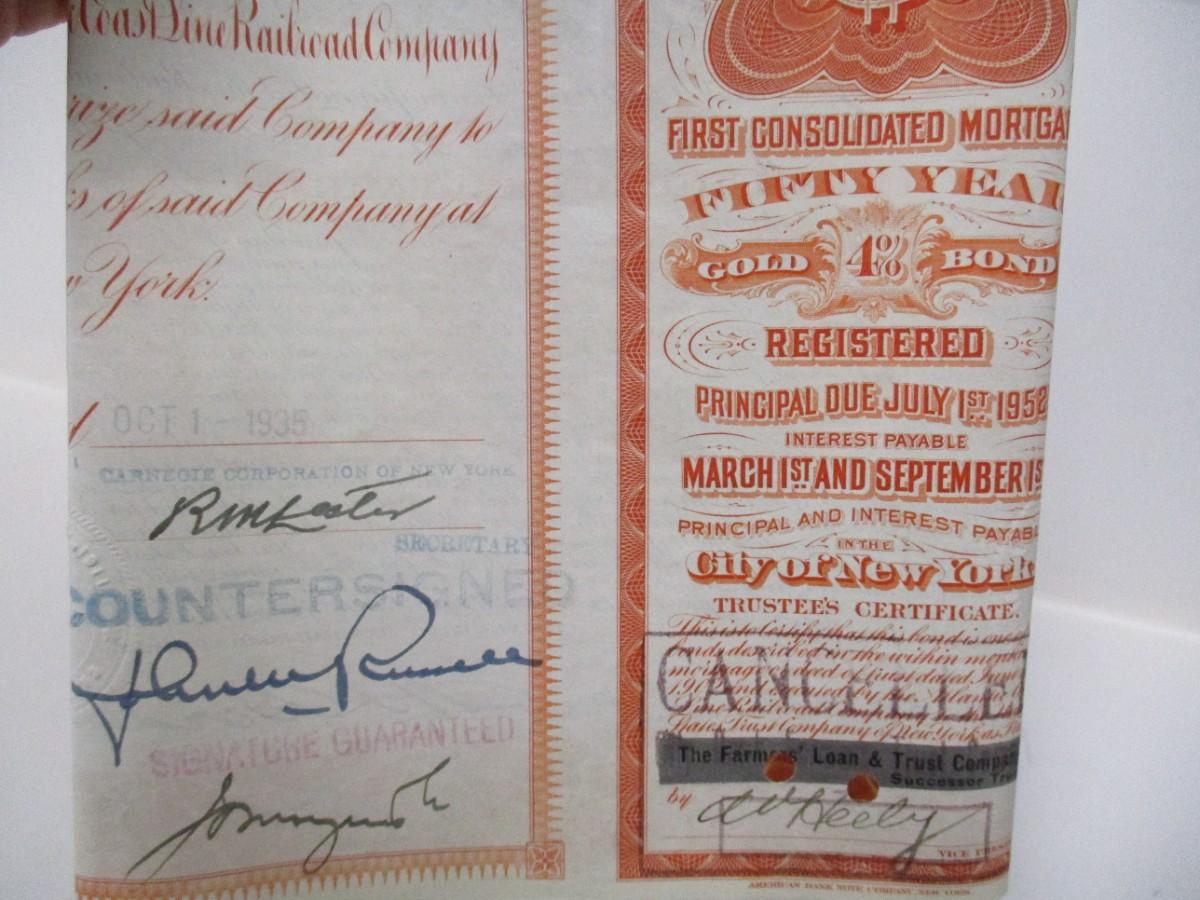 Coast Line Railroad Company
rize said Company to
s of said Company at
York.
OCT 1 - 1935
CARNEGIE CORPORATION OF NEW YORK
RM Lester
SECRETARY
COUNTERSIGNED
Russell
SIGNATURE GUARANTEED
FIRST CONSOLIDATED MORTGA
FIFTY YEAR
GOLD 4% BOND
REGISTERED
PRINCIPAL DUE JULY 1ST 1952
INTEREST PAYABLE
MARCH 1ST AND SEPTEMBER 1S
PRINCIPAL AND INTEREST PAYABL
IN THE
City of New York
TRUSTEE'S CERTIFICATE.
This is to Certify that this bond is one of
bonds described in the within
mortgage or deed of trust dated
CANCELLE
Line Railroad Company to the
States Trust Company of New York as
The Farmers' Loan & Trust Compan
Successor Tru
by
VICE PRES
AMERICAN BANK NOTE COMPANY, NEW YORK